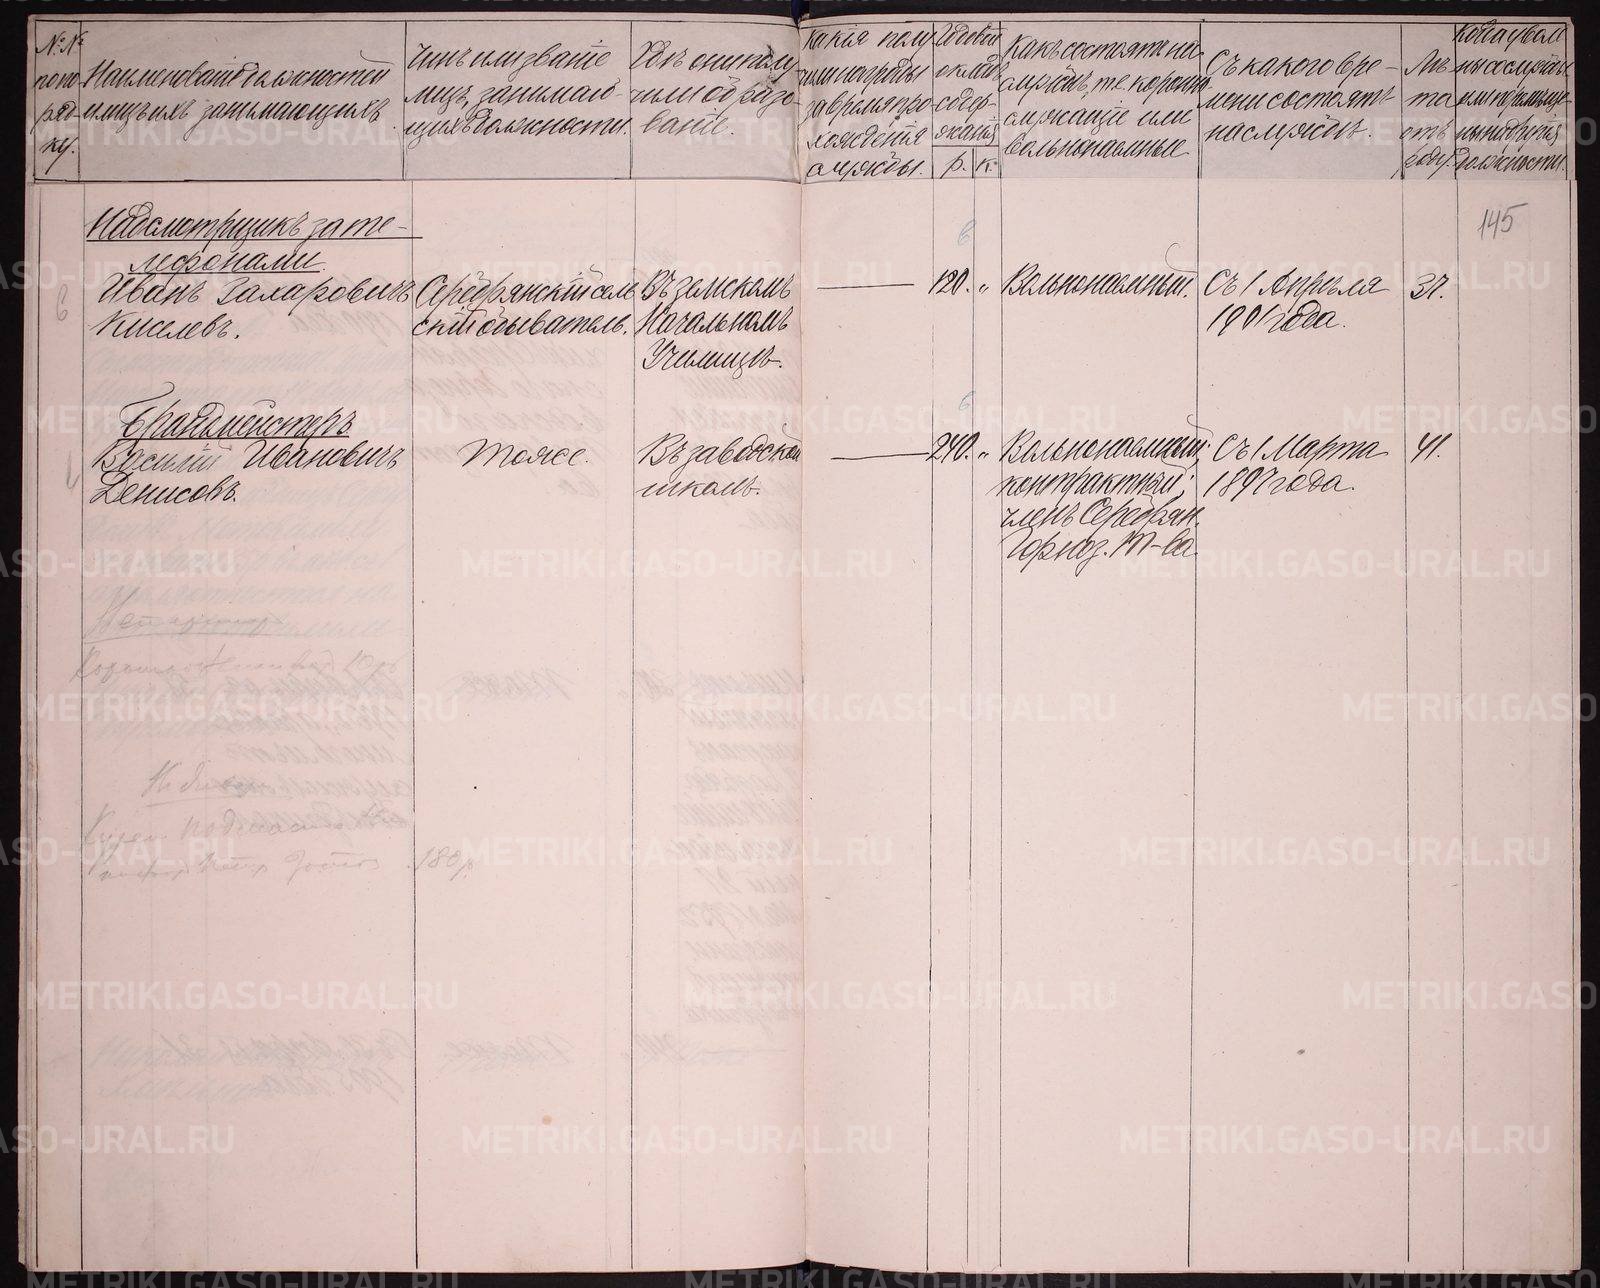 №№
по по-
ряд-
ку.
Наименованіе должностей
и лицъ ихъ занимающихъ.
Чинъ или званіе
лицъ, занимаю-
щихъ должности.
Гдѣ они полу-
чили образо-
ваніе.
Какія полу-
чили награды
за время про-
хожденія
службы.
Годовой
окладъ
содер-
жанія
р. к.
Какъ состоятъ на
службѣ, т.е. коронно
служащіе или
вольнонаемные
Съ какого вре-
мени состоятъ
на службѣ.
Лѣ-
та
отъ
роду.
Когда уволе-
ны со службы
или перемѣще-
ны на другія
должности.
145
Надсмотрщикъ за те-
лефонами.
Иванъ Захаровичъ
Киселевъ.
Серебрянскій сель-
скій обыватель.
Въ земскомъ
Начальномъ
Училищѣ.
120. „
Вольнонаемный.
Съ 1 Апрѣля
1901 года.
37.
Брандмейстеръ
Василій Ивановичъ
Денисовъ.
Тоже.
Въ заводской
школѣ.
240. „
Вольнонаемный;
контрактный;
членъ Серебрян.
Горноз. Т-ва.
Съ 1 Марта
1897 года.
41.
180 р
METRIKI.GASO-URAL.RU